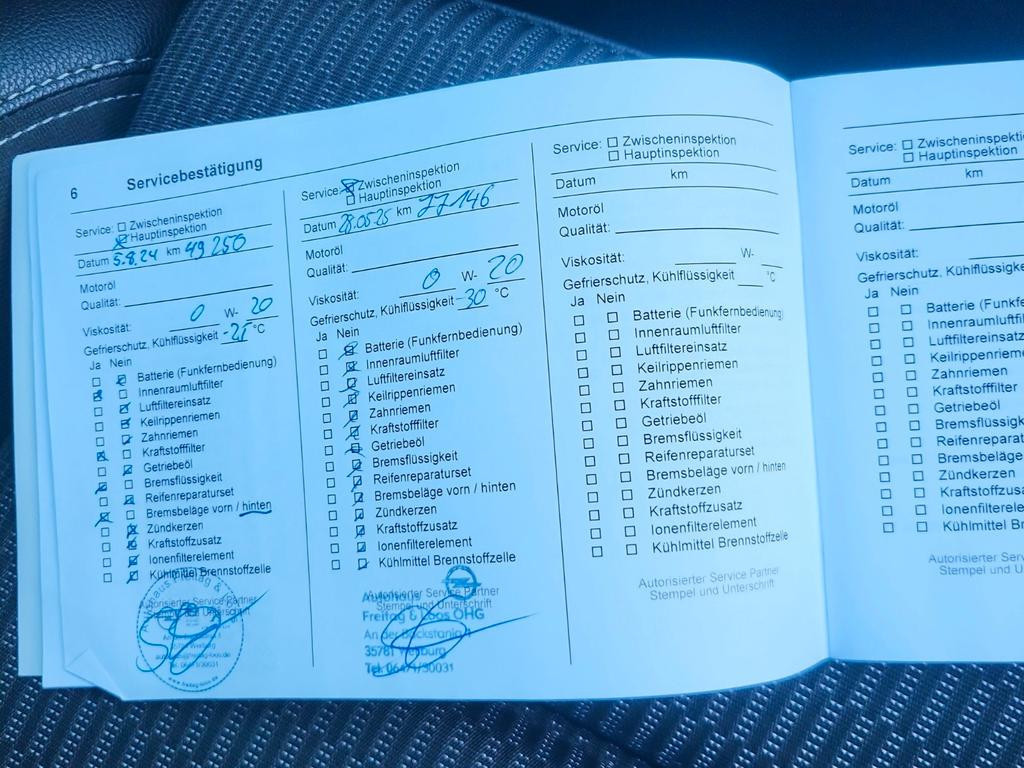 6 Servicebestätigung
Service: Zwischeninspektion
Hauptinspektion
Datum 5.8.24 km 49 250
Motoröl
Qualität:
Viskosität: 0 W- 20
Gefrierschutz, Kühlflüssigkeit -25 °C
Ja Nein
Batterie (Funkfernbedienung)
Innenraumluftfilter
Luftfiltereinsatz
Keilrippenriemen
Zahnriemen
Kraftstofffilter
Getriebeöl
Bremsflüssigkeit
Reifenreparaturset
Bremsbeläge vorn / hinten
Zündkerzen
Kraftstoffzusatz
Ionenfilterelement
Kühlmittel Brennstoffzelle
Autorisierter Service Partner
Stempel und Unterschrift
www.freitag-loos.de
Service: Zwischeninspektion
Hauptinspektion
Datum 28.05.25 km 77 146
Motoröl
Qualität:
Viskosität: 0 W- 20
Gefrierschutz, Kühlflüssigkeit -30 °C
Ja Nein
Batterie (Funkfernbedienung)
Innenraumluftfilter
Luftfiltereinsatz
Keilrippenriemen
Zahnriemen
Kraftstofffilter
Getriebeöl
Bremsflüssigkeit
Reifenreparaturset
Bremsbeläge vorn / hinten
Zündkerzen
Kraftstoffzusatz
Ionenfilterelement
Kühlmittel Brennstoffzelle
Autorisierter Service Partner
Stempel und Unterschrift
Autohaus
Freitag & Loos OHG
An der Backstania 1
35781 Weilburg
Tel. 06471/30031
Service: Zwischeninspektion
Hauptinspektion
Datum km
Motoröl
Qualität:
Viskosität: W-
Gefrierschutz, Kühlflüssigkeit °C
Ja Nein
Batterie (Funkfernbedienung)
Innenraumluftfilter
Luftfiltereinsatz
Keilrippenriemen
Zahnriemen
Kraftstofffilter
Getriebeöl
Bremsflüssigkeit
Reifenreparaturset
Bremsbeläge vorn / hinten
Zündkerzen
Kraftstoffzusatz
Ionenfilterelement
Kühlmittel Brennstoffzelle
Autorisierter Service Partner
Stempel und Unterschrift
Service: Zwischeninspekti
Hauptinspektion
Datum km
Motoröl
Qualität:
Viskosität:
Gefrierschutz, Kühlflüssigke
Ja Nein
Batterie (Funkfe
Innenraumluftfi
Luftfiltereinsatz
Keilrippenrieme
Zahnriemen
Kraftstofffilter
Getriebeöl
Bremsflüssigk
Reifenreparat
Bremsbeläge
Zündkerzen
Kraftstoffzusa
Ionenfilterele
Kühlmittel Br
Autorisierter Serv
Stempel und U